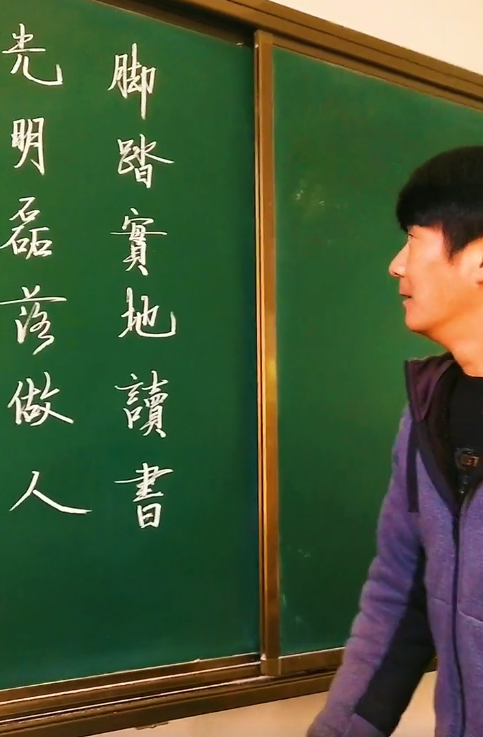 脚踏實地讀書
光明磊落做人